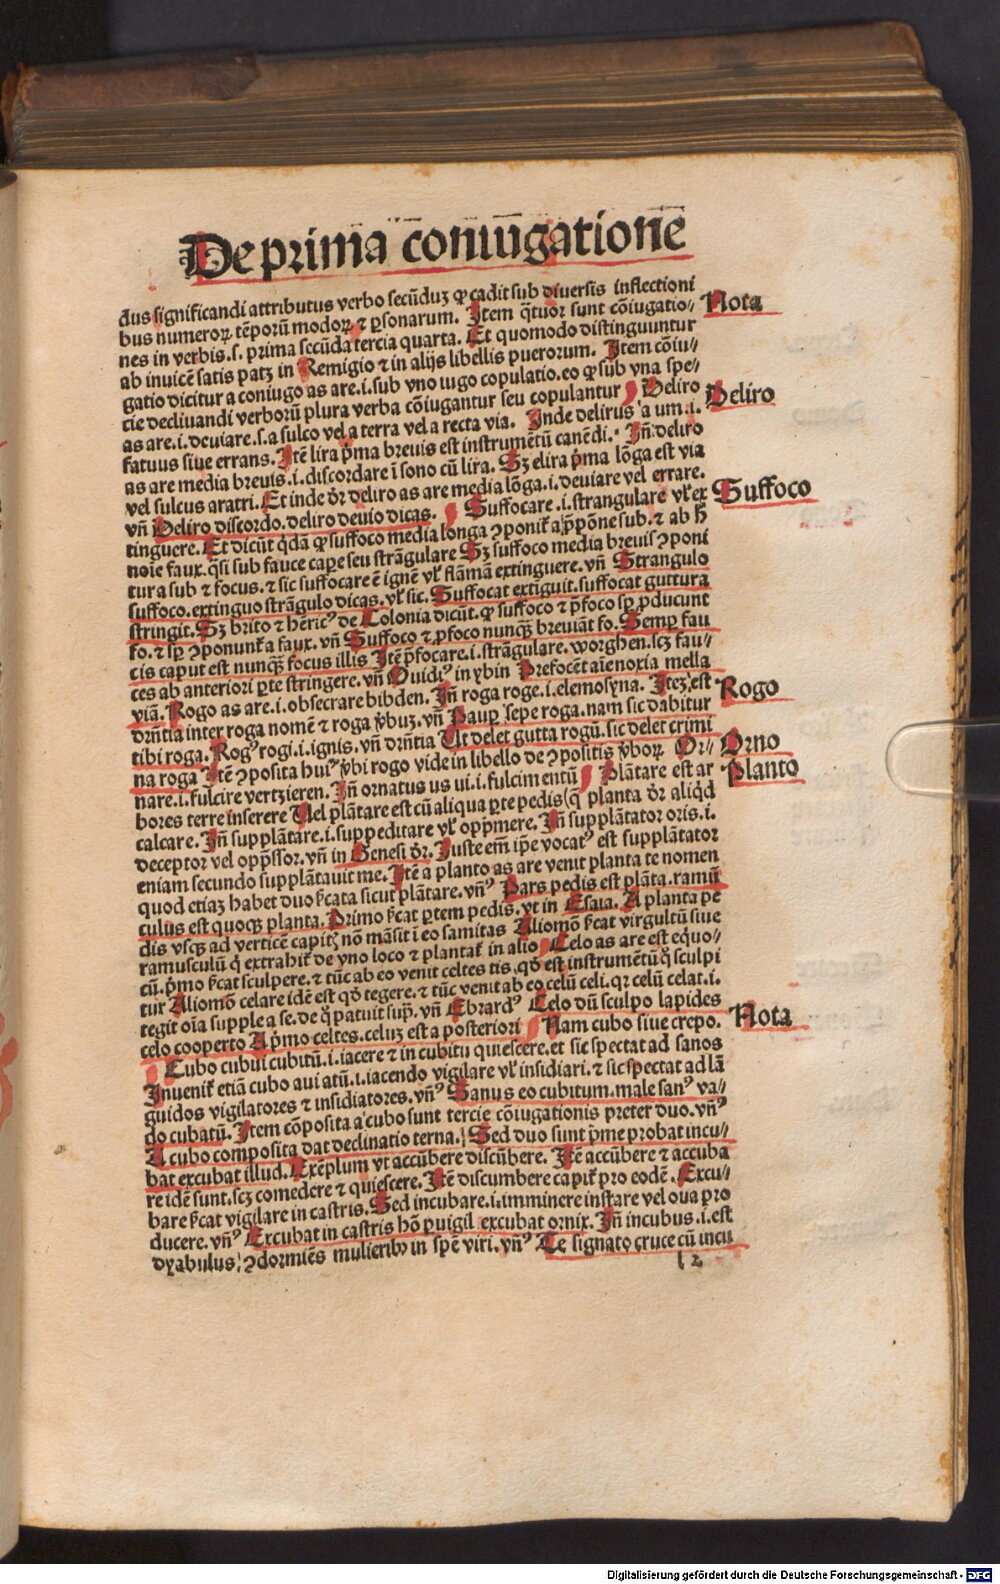 De prima coniugatione
dus significandi attributus verbo secūduꝫ ꝙ cadit sub diuersis inflectioni
bus numeroꝝ tēporū modoꝝ ⁊ ꝑsonarum. Item q̄tuor sunt cōiugatio-
Nota
nes in verbis.s. prima secūda tercia quarta. Et quomodo distinguuntur
ab inuicē satis patꝫ in Remigio ⁊ in alijs libellis puerorum. Item cōiu-
gatio dicitur a coniugo as are.i.sub vno iugo copulatio.eo ꝙ sub vna spe-
cie decliuandi verborū plura verba cōiugantur seu copulantur Deliro
Deliro
as are.i.deuiare.s.a sulco vel a terra vel a recta via. Inde delirus a um.i.
fatuus siue errans. Itē lira p̄ma breuis est instrumētū canēdi. Iñ deliro
as are media breuis.i.discordare ī sono cū lira. Sꝫ elira p̄ma lōga est via
vel sulcus aratri. Et inde d̄r deliro as are media lōga.i.deuiare vel errare.
vñ Deliro discordo.deliro deuio dicas. Suffocare.i.strangulare vl̓ ex
Suffoco
tinguere. Et dicūt q̄dā ꝙ suffoco media longa ꝯponit̓ a p̄pōne sub.⁊ ab h̄
noīe faux.q̄si sub fauce capere seu strāgulare Sꝫ suffoco media breuis ꝯponi
tura sub ⁊ focus.⁊ sic suffocare ē ignē vl̓ flāmā extinguere.vñ Strangulo
suffoco.extinguo strāgulo dicas.vl̓ sic.Suffocat extiguit.suffocat guttura
stringit.Sꝫ brito ⁊ hēricꝰ de Colonia dicūt.ꝙ suffoco ⁊ p̄foco sꝑ ꝓducunt
fo.⁊ sꝑ ꝯponunt̓ a faux.vñ Suffoco ⁊ p̄foco nunqꝫ breuiāt fo.Semꝑ fau
cis caput est nunqꝫ focus illis Itē p̄focare.i.strāgulare.worghen.scꝫ fau-
ces ab anteriori ꝑte stringere.vñ Ouidiꝰ in ybin Prefocēt aīe noxia mella
viā.Rogo as are.i.obsecrare bibden. Iñ roga roge.i.elemosyna. Iteꝫ est
Rogo
drn̄tia inter roga nomē ⁊ roga v̄buꝫ.vñ Pauꝑ sepe roga.nam sic dabitur
tibi roga.Rogꝰ rogi.i.ignis.vñ drn̄tia Ut delet gutta rogū.sic delet crimi
na roga Itē ꝯposita huiꝰ v̄bi rogo vide in libello de ꝯpositis v̄boꝝ Or-
Orno
nare.i.fulcire vertzieren. Iñ ornatus us ui.i.fulcimentū Plātare est ar
Planto
bores terre inserere Uel plātare est cū aliqua ꝑte pedis (q̄ planta d̄r aliq̄d
calcare.Iñ supplātare.i.suppeditare vl̓ opp̄mere.Iñ supplātator oris.i.
deceptor vel opp̄ssor.vñ in Genesi d̄r.Juste em̄ ip̄e vocatꝰ est supplātator
eniam secundo supplātauit me.Itē a planto as are venit planta te nomen
quod etiaꝫ habet duo s̄cata sicut plātare.vñꝰ Pars pedis est plāta.ramū
culus est quoqꝫ planta.Primo s̄cat ꝑtem pedis.vt in Esaia.A planta pe
dis vsqꝫ ad verticē capitꝭ nō māsit ī eo samitas Aliomō s̄cat virgultū siue
ramusculū q̄ extrahit̓ de vno loco ⁊ plantat̓ in alio Celo as are est equo-
cū.p̄mo s̄cat sculpere.⁊ tūc ab eo venit celtes tis.qd̄ est instrumētū q̄ sculpi
tur Aliomō celare idē est qd̄ tegere.⁊ tūc venit ab eo celū celi.qꝛ celū celat.i.
tegit oīa supple a se.de q̄ patuit suꝑ.vñ Ebrardꝰ Celo dū sculpo lapides
celo cooperto A p̄mo celtes.celuꝫ est a posteriori Nam cubo siue crepo.
Nota
Cubo cubui cubitū.i.iacere ⁊ in cubitu quiescere.et sic spectat ad sanos
Inuenit̓ etiā cubo aui atū.i.iacendo vigilare vl̓ insidiari.⁊ sic spectat ad lā
guidos vigilatores ⁊ insidiatores.vñꝰ Sanus eo cubitum.male sanꝰ va-
do cubatū.Item cōposita a cubo sunt tercie cōiugationis preter duo.vñꝰ
A cubo composita dat declinatio terna. Sed duo sunt p̄me probat incu-
bat excubat illud.Exēplum vt accūbere discūbere. Itē accūbere ⁊ accuba
re idē sunt.scꝫ comedere ⁊ quiescere.Itē discumbere capit̓ pro eodē. Excu-
bare s̄cat vigilare in castris.Sed incubare.i.imminere instare vel oua pro
ducere.vñꝰ Excubat in castris hō ꝑuigil excubat ornix.Iñ incubus.i.est
dyabulus ꝯdormiēs mulieribꝫ in spē viri.vñꝰ Te signato cruce cū incu
l 2